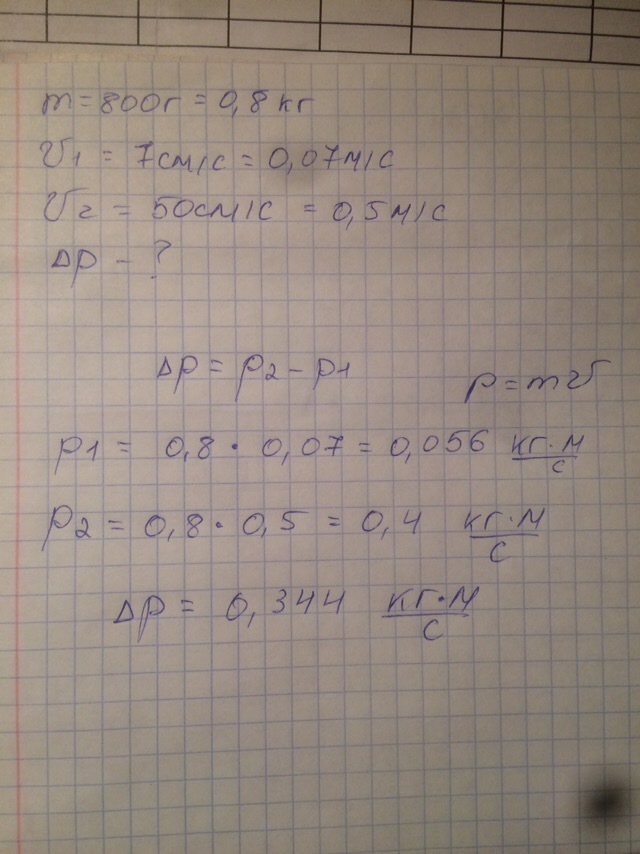 m = 800г = 0,8 кг
v1 = 7см/с = 0,07м/с
v2 = 50см/с = 0,5м/с
Δp - ?
Δp = p2 - p1
p = mv
p1 = 0,8 · 0,07 = 0,056 кг·м/с
p2 = 0,8 · 0,5 = 0,4 кг·м/с
Δp = 0,344 кг·м/с